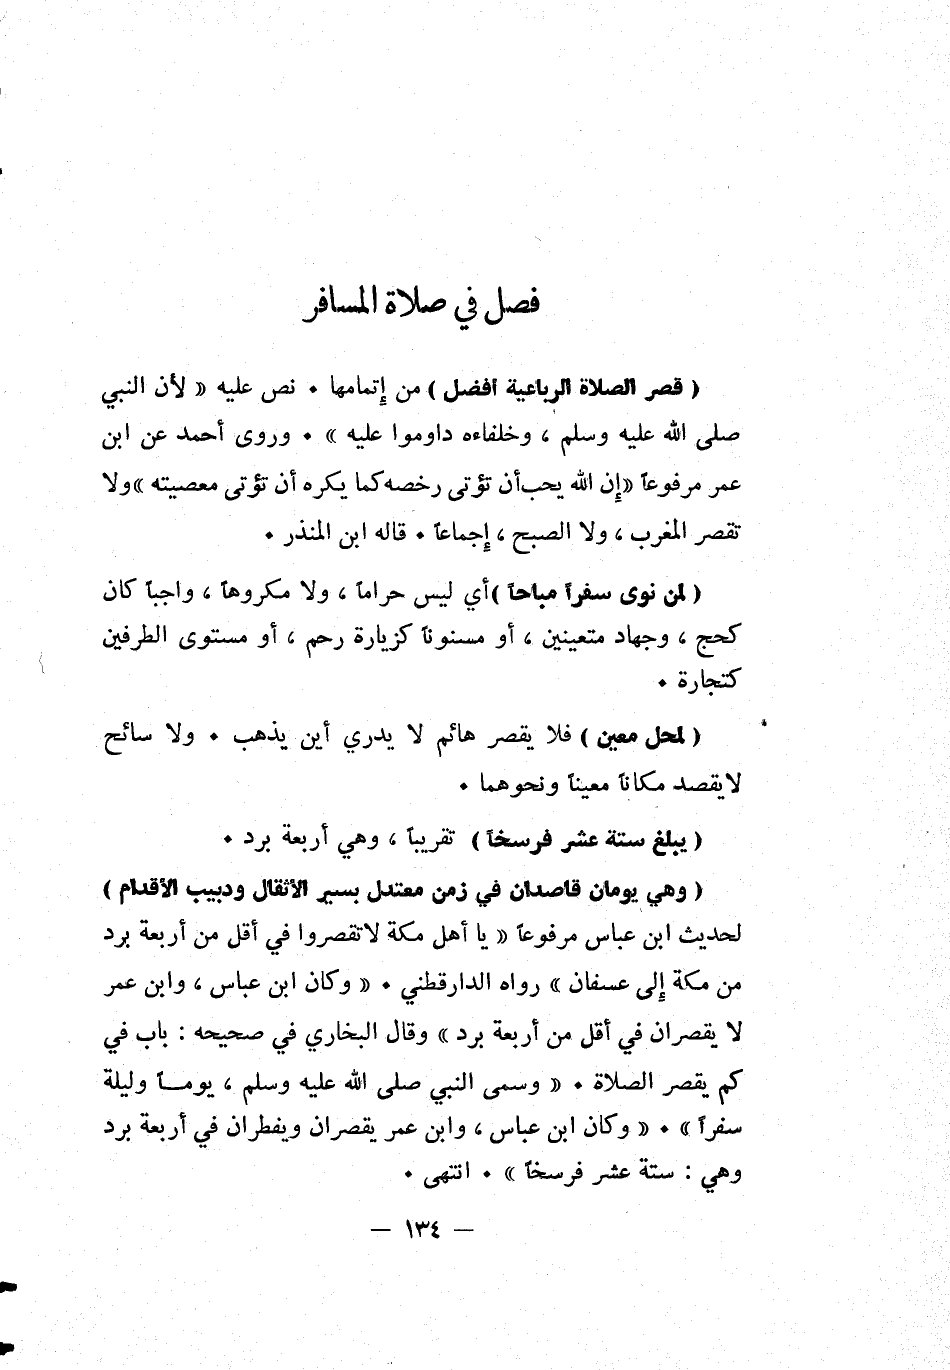 فصل في صلاة المسافر
( قصر الصلاة الرباعية أفضل ) من إتمامها ٠ نص عليه « لأن النبي
صلى الله عليه وسلم ، وخلفاءه داوموا عليه » ٠ وروى أحمد عن ابن
عمر مرفوعاً «إن الله يحب أن تؤتى رخصه كما يكره أن تؤتى معصيته »ولا
تقصر المغرب ، ولا الصبح ، إجماعاً ٠ قاله ابن المنذر ٠
( لمن نوى سفراً مباحاً )أي ليس حراماً ، ولا مكروهاً ، واجباً كان
كحج ، وجهاد متعينين ، أو مسنوناً كزيارة رحم ، أو مستوى الطرفين
كتجارة ٠
( لمحل معين ) فلا يقصر هائم لا يدري أين يذهب ٠ ولا سائح
لايقصد مكاناً معيناً ونحوهما ٠
( يبلغ ستة عشر فرسخاً ) تقريباً ، وهي أربعة برد ٠
( وهي يومان قاصدان في زمن معتدل بسير الأثقال ودبيب الأقدام )
لحديث ابن عباس مرفوعاً « يا أهل مكة لاتقصروا في أقل من أربعة برد
من مكة إلى عسفان » رواه الدارقطني ٠ « وكان ابن عباس ، وابن عمر
لا يقصران في أقل من أربعة برد » وقال البخاري في صحيحه : باب في
كم يقصر الصلاة ٠ « وسمى النبي صلى الله عليه وسلم ، يومـــاً وليلة
سفراً » ٠ « وكان ابن عباس ، وابن عمر يقصران ويفطران في أربعة برد
وهي : ستة عشر فرسخاً » ٠ انتهى ٠
— ١٣٤ —